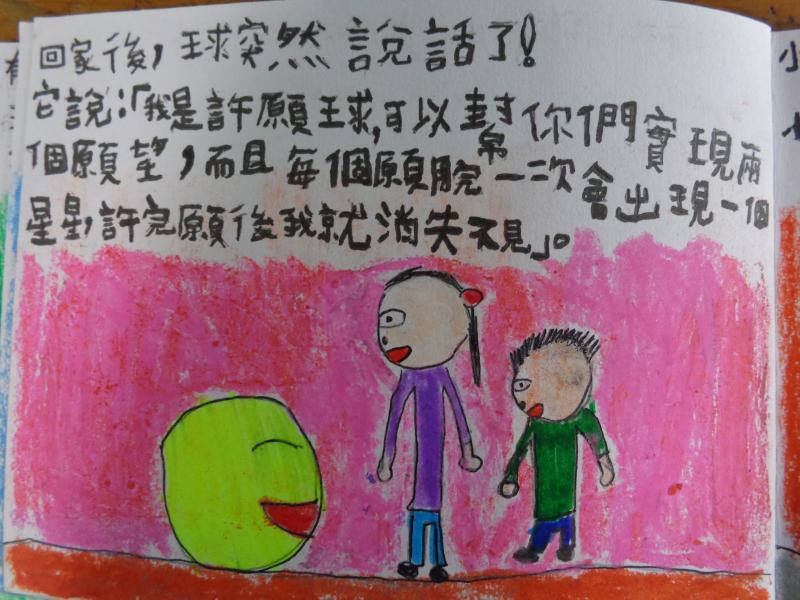 回家後，球突然說話了！
它說：「我是許願球，可以幫你們實現兩
個願望，而且每個願望脘一次會出現一個
星星，許完願後我就消失不見」。
小